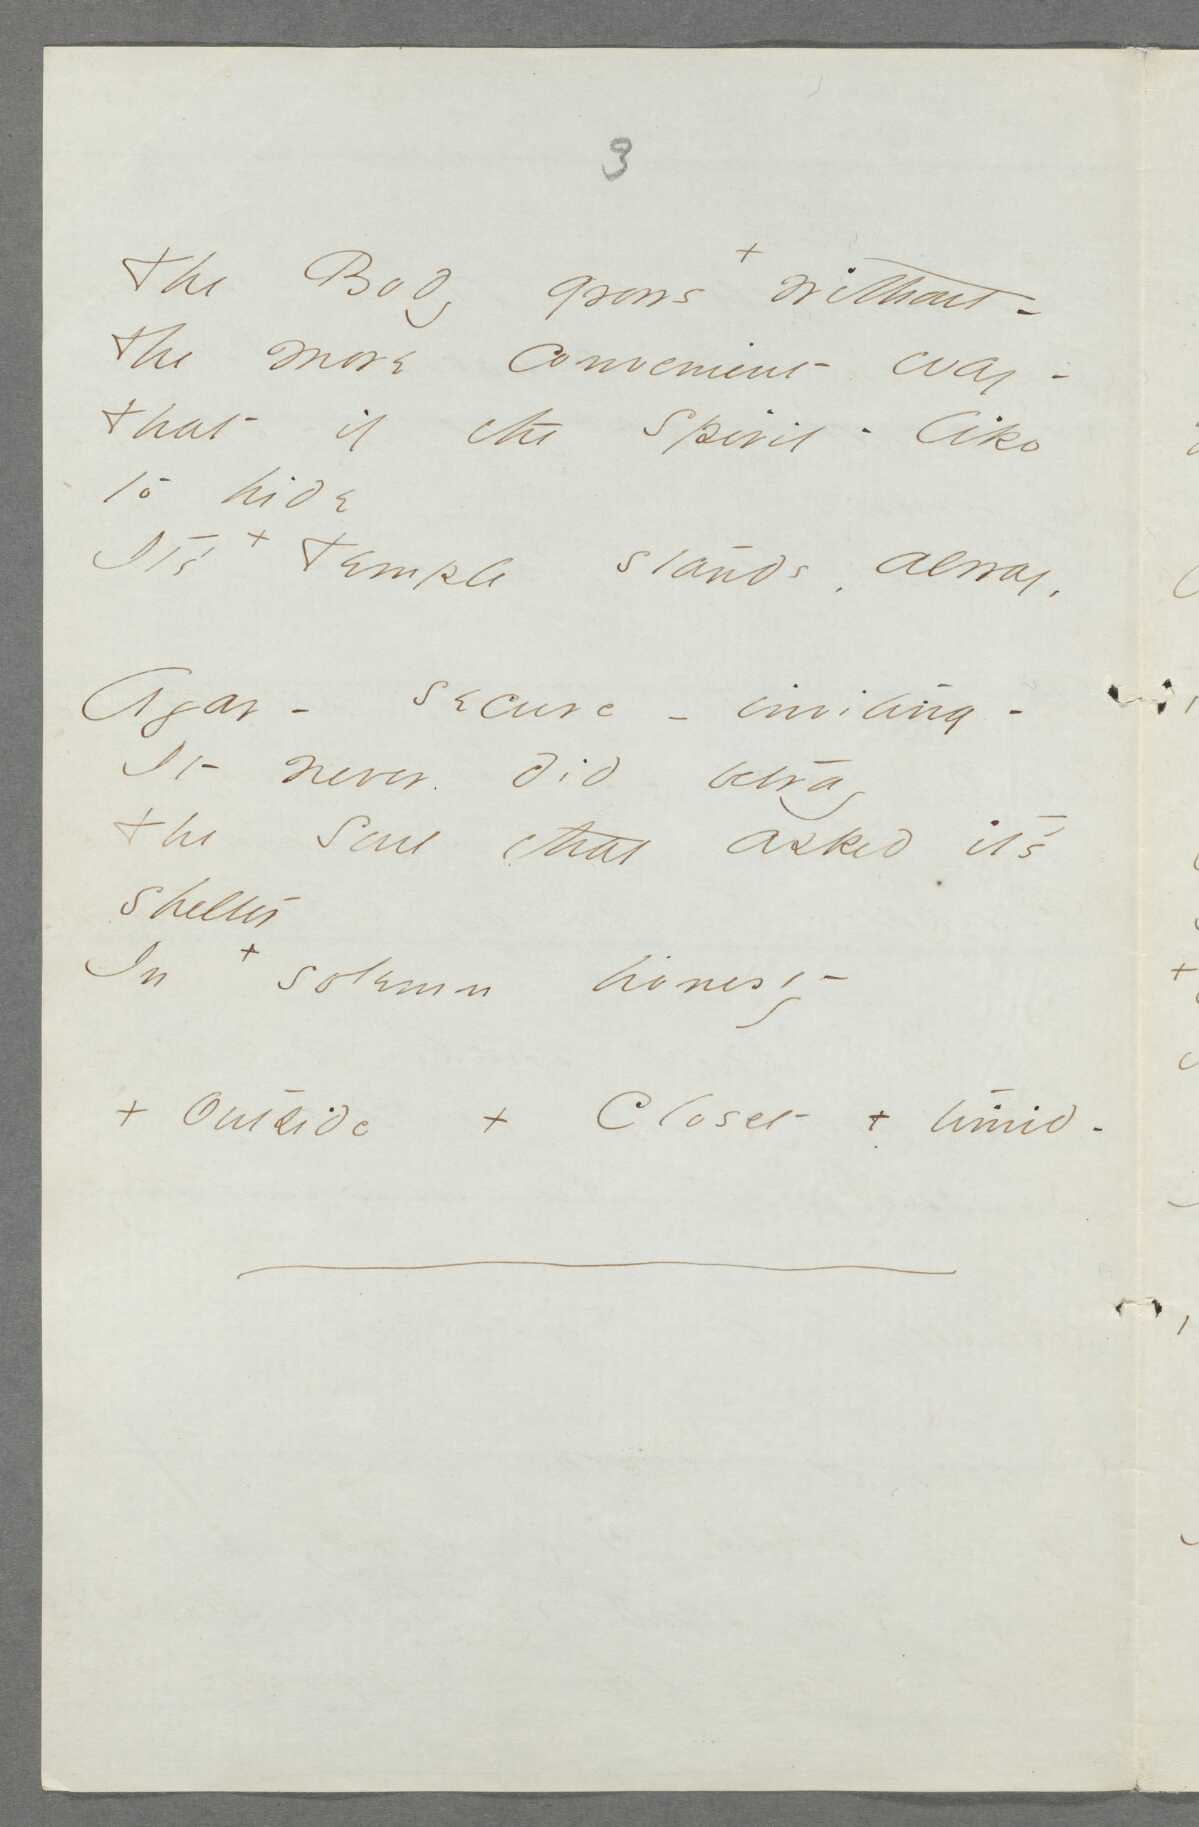 3
The Body grows + without -
The more convenient way -
That if the Spirit - like
to hide
It's + Temple stands, alway,
Ajar - secure - inviting -
It never did betray
The Soul that asked it's
shelter
In + solemn honesty -
+ Outside + Closet + timid -